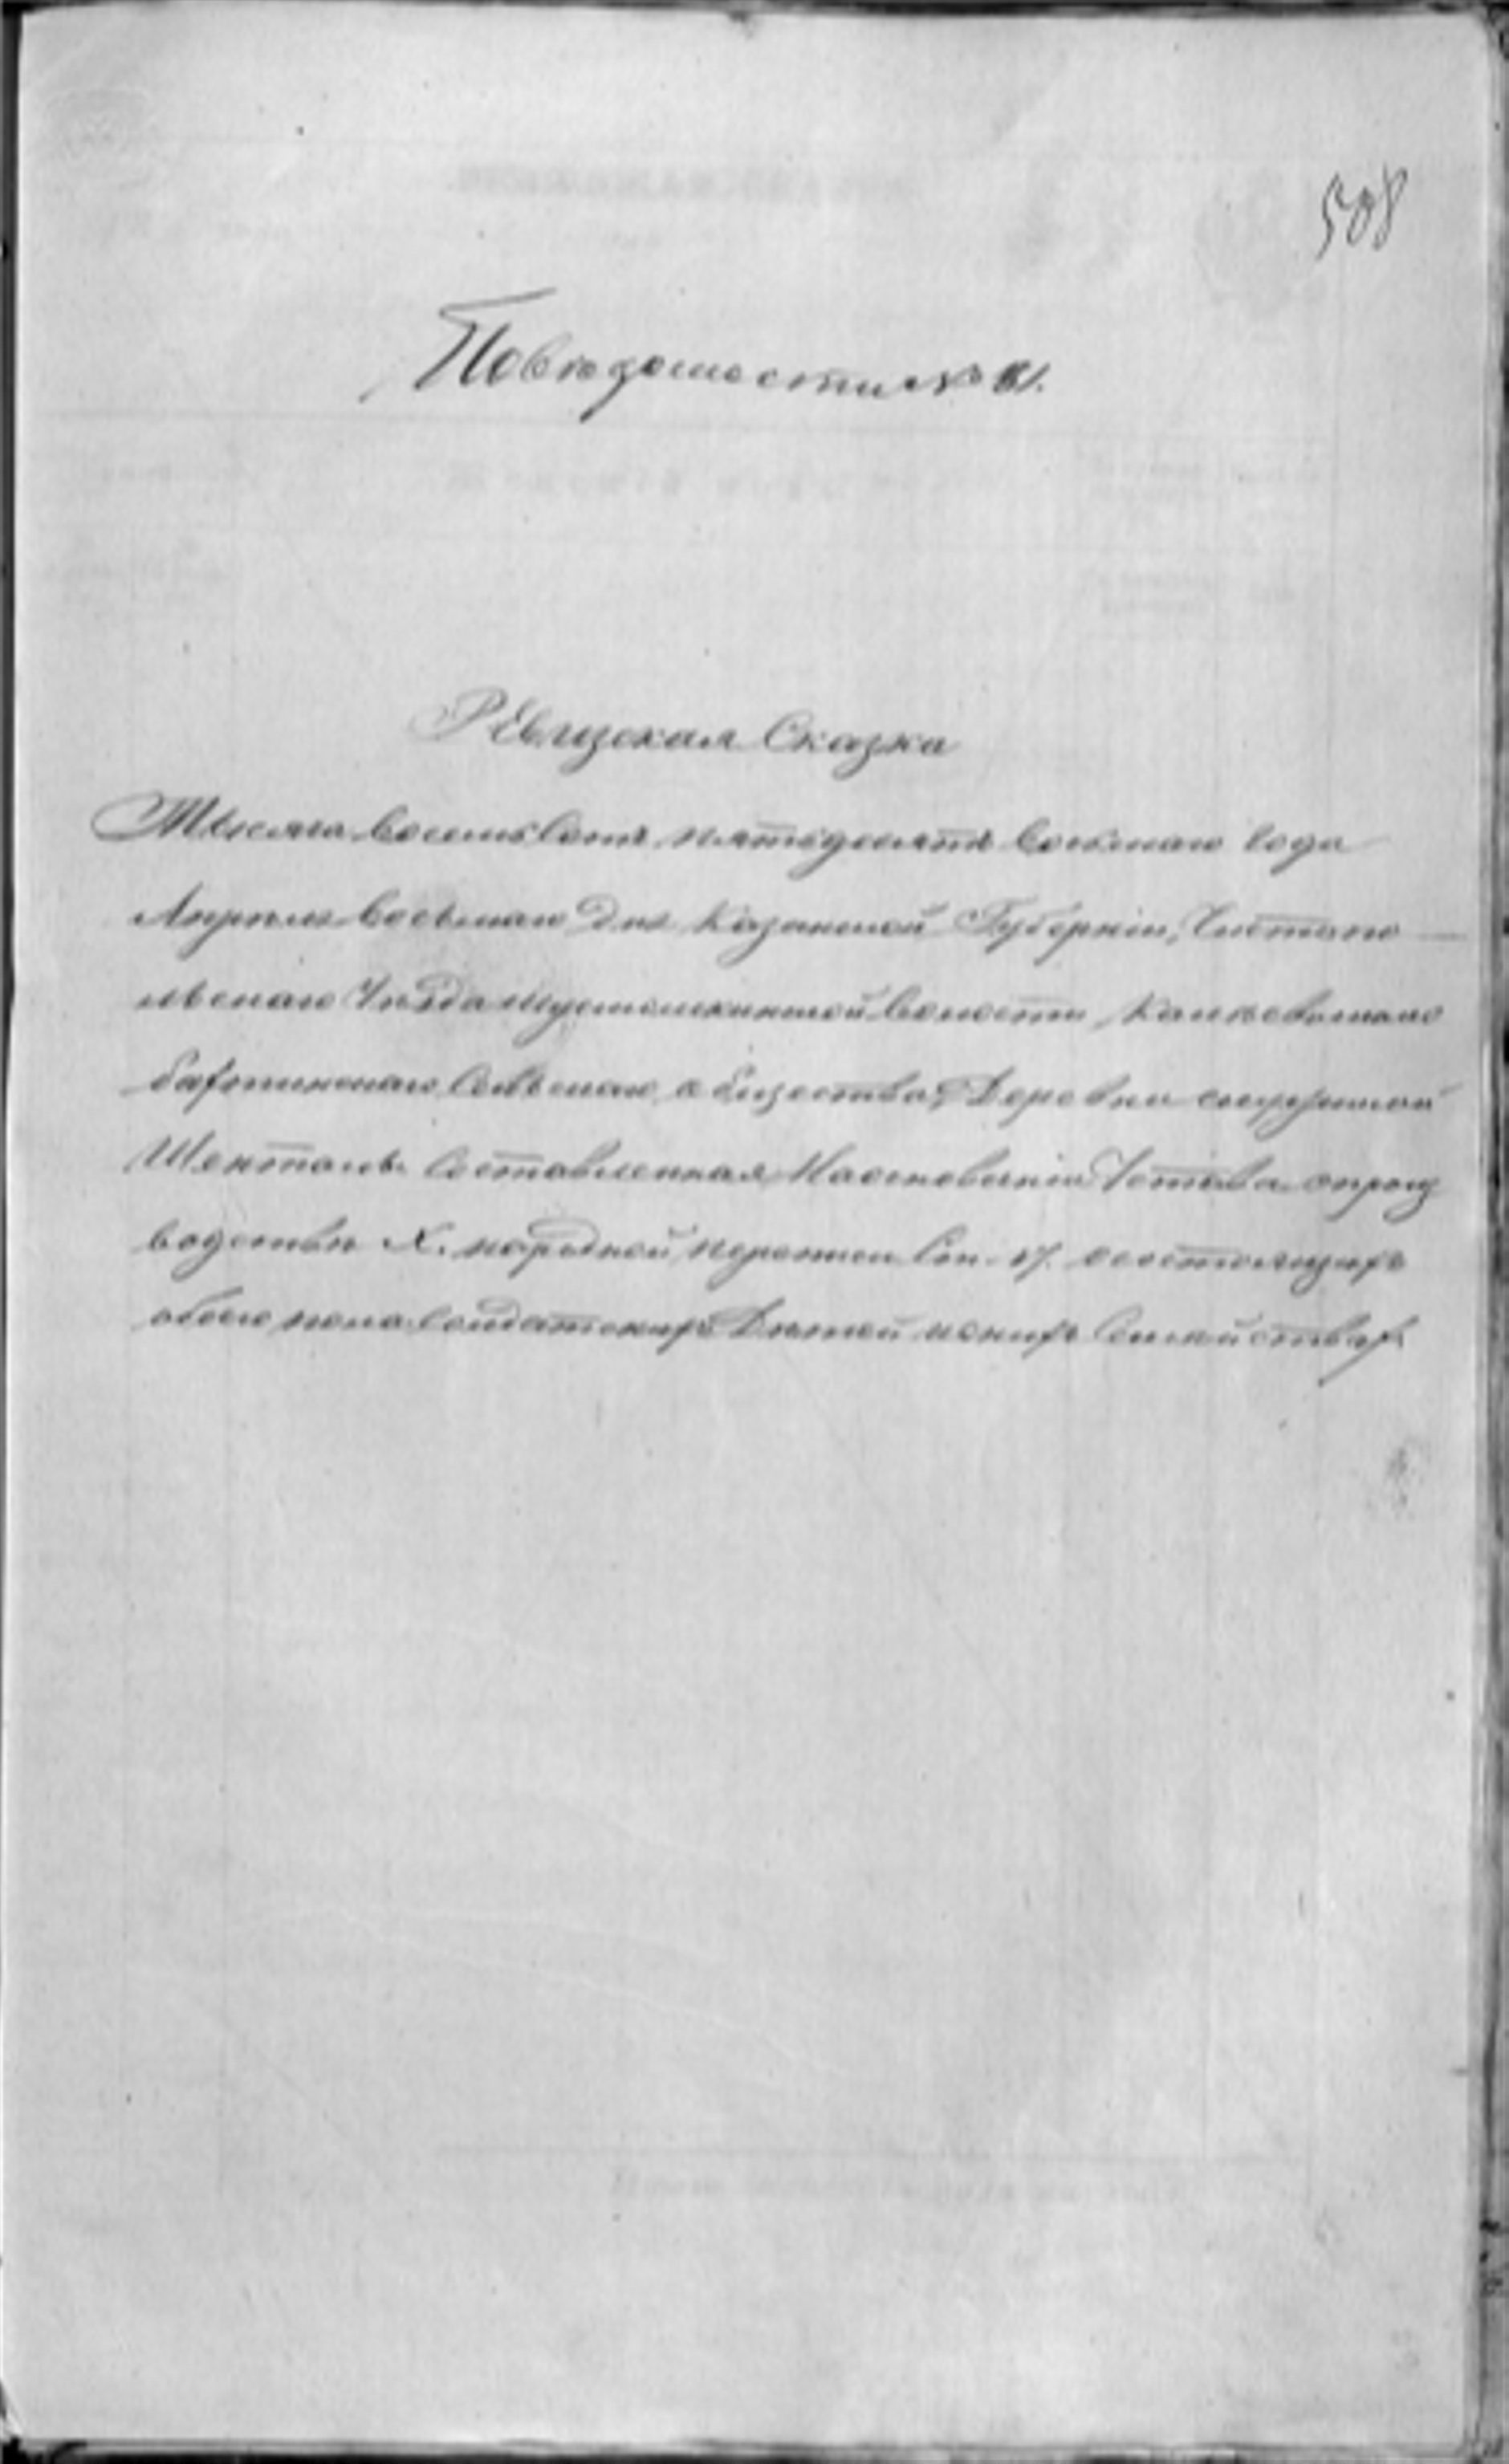 508
Поведомости № 81.
Ревизская Сказка
Тысяча восемьсотъ пятьдесятъ восьмаго года
Апреля восьмаго дня Казанской Губерніи, Чистопо
льскаго Уезда Мусинской волости
Сельскаго общества, Деревни
Шенталы составленная Наосновании Устава опроиз
водстве X. народной переписи Сост. 17. состоящихъ
обоего пола солдатскихъ Детей иснихъ Семействахъ